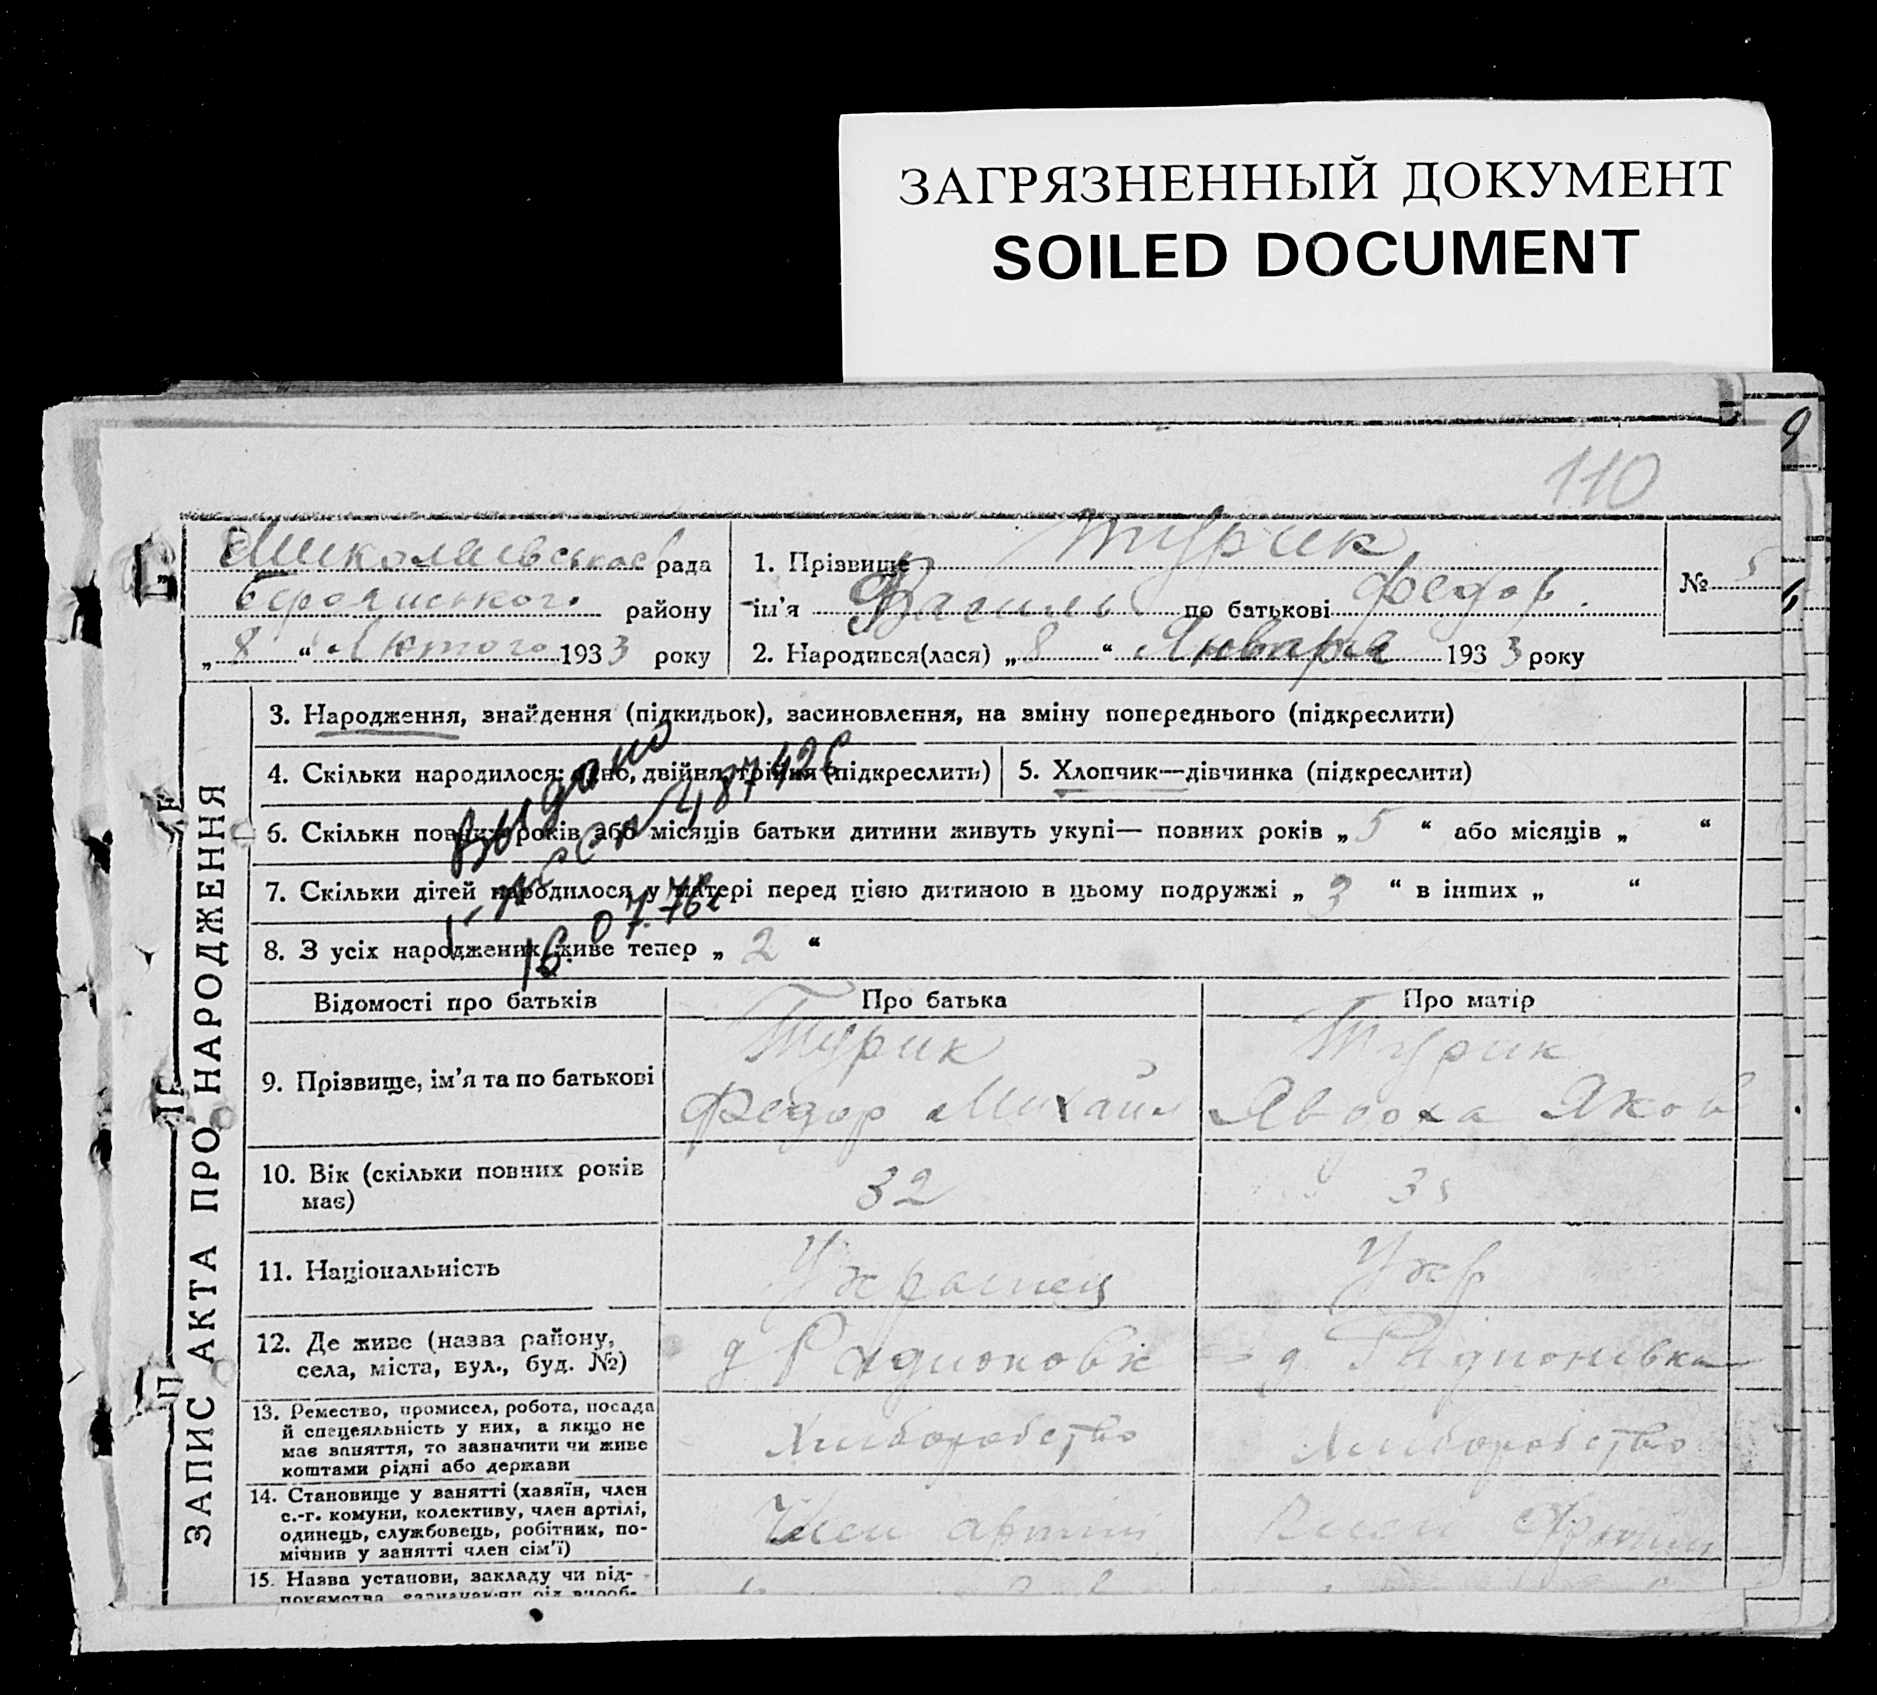 ЗАГРЯЗНЕННЫЙ ДОКУМЕНТ
SOILED DOCUMENT
110
Миколаївською рада
району
„ 8 “ Лютого 1933 року
1. Прізвище Турик
ім’я Василь по батькові Федор.
2. Народився(лася) „ 8 “ Января 1933 року
№ 5
ЗАПИС АКТА ПРО НАРОДЖЕННЯ
3. Народження, знайдення (підкидьок), засиновлення, на зміну попереднього (підкреслити)
4. Скільки народилося: одно, двійня, трійня (підкреслити)
5. Хлопчик—дівчинка (підкреслити)
6. Скільки повних років або місяців батьки дитини живуть укупі— повних років „ 5 “ або місяців „ “
7. Скільки дітей народилося у матері перед цією дитиною в цьому подружжі „ 3 “ в інших „ “
8. З усіх народжених живе тепер „ 2 “
Видано
487426
16.07.76г
Відомості про батьків
Про батька
Про матір
9. Прізвище, ім’я та по батькові
Турик
Федор Михайл
Турик
Явдоха Яков
10. Вік (скільки повних років
має)
32
11. Національність
Украінец
Укр
12. Де живе (назва району,
села, міста, вул., буд. №)
д Радионовк
д Радионивка
13. Ремество, промисел, робота, посада
й спецеяльність у них, а якщо не
має заняття, то зазначити чи живе
коштами рідні або держави
Хлиборобство
Хлиборобство
14. Становище у занятті (хазяїн, член
с.-г. комуни, колективу, член артілі,
одинець, службовець, робітник, по-
мічнив у занятті член сім’ї)
Член артіли
Член Артили
15. Назва установи, закладу чи під-